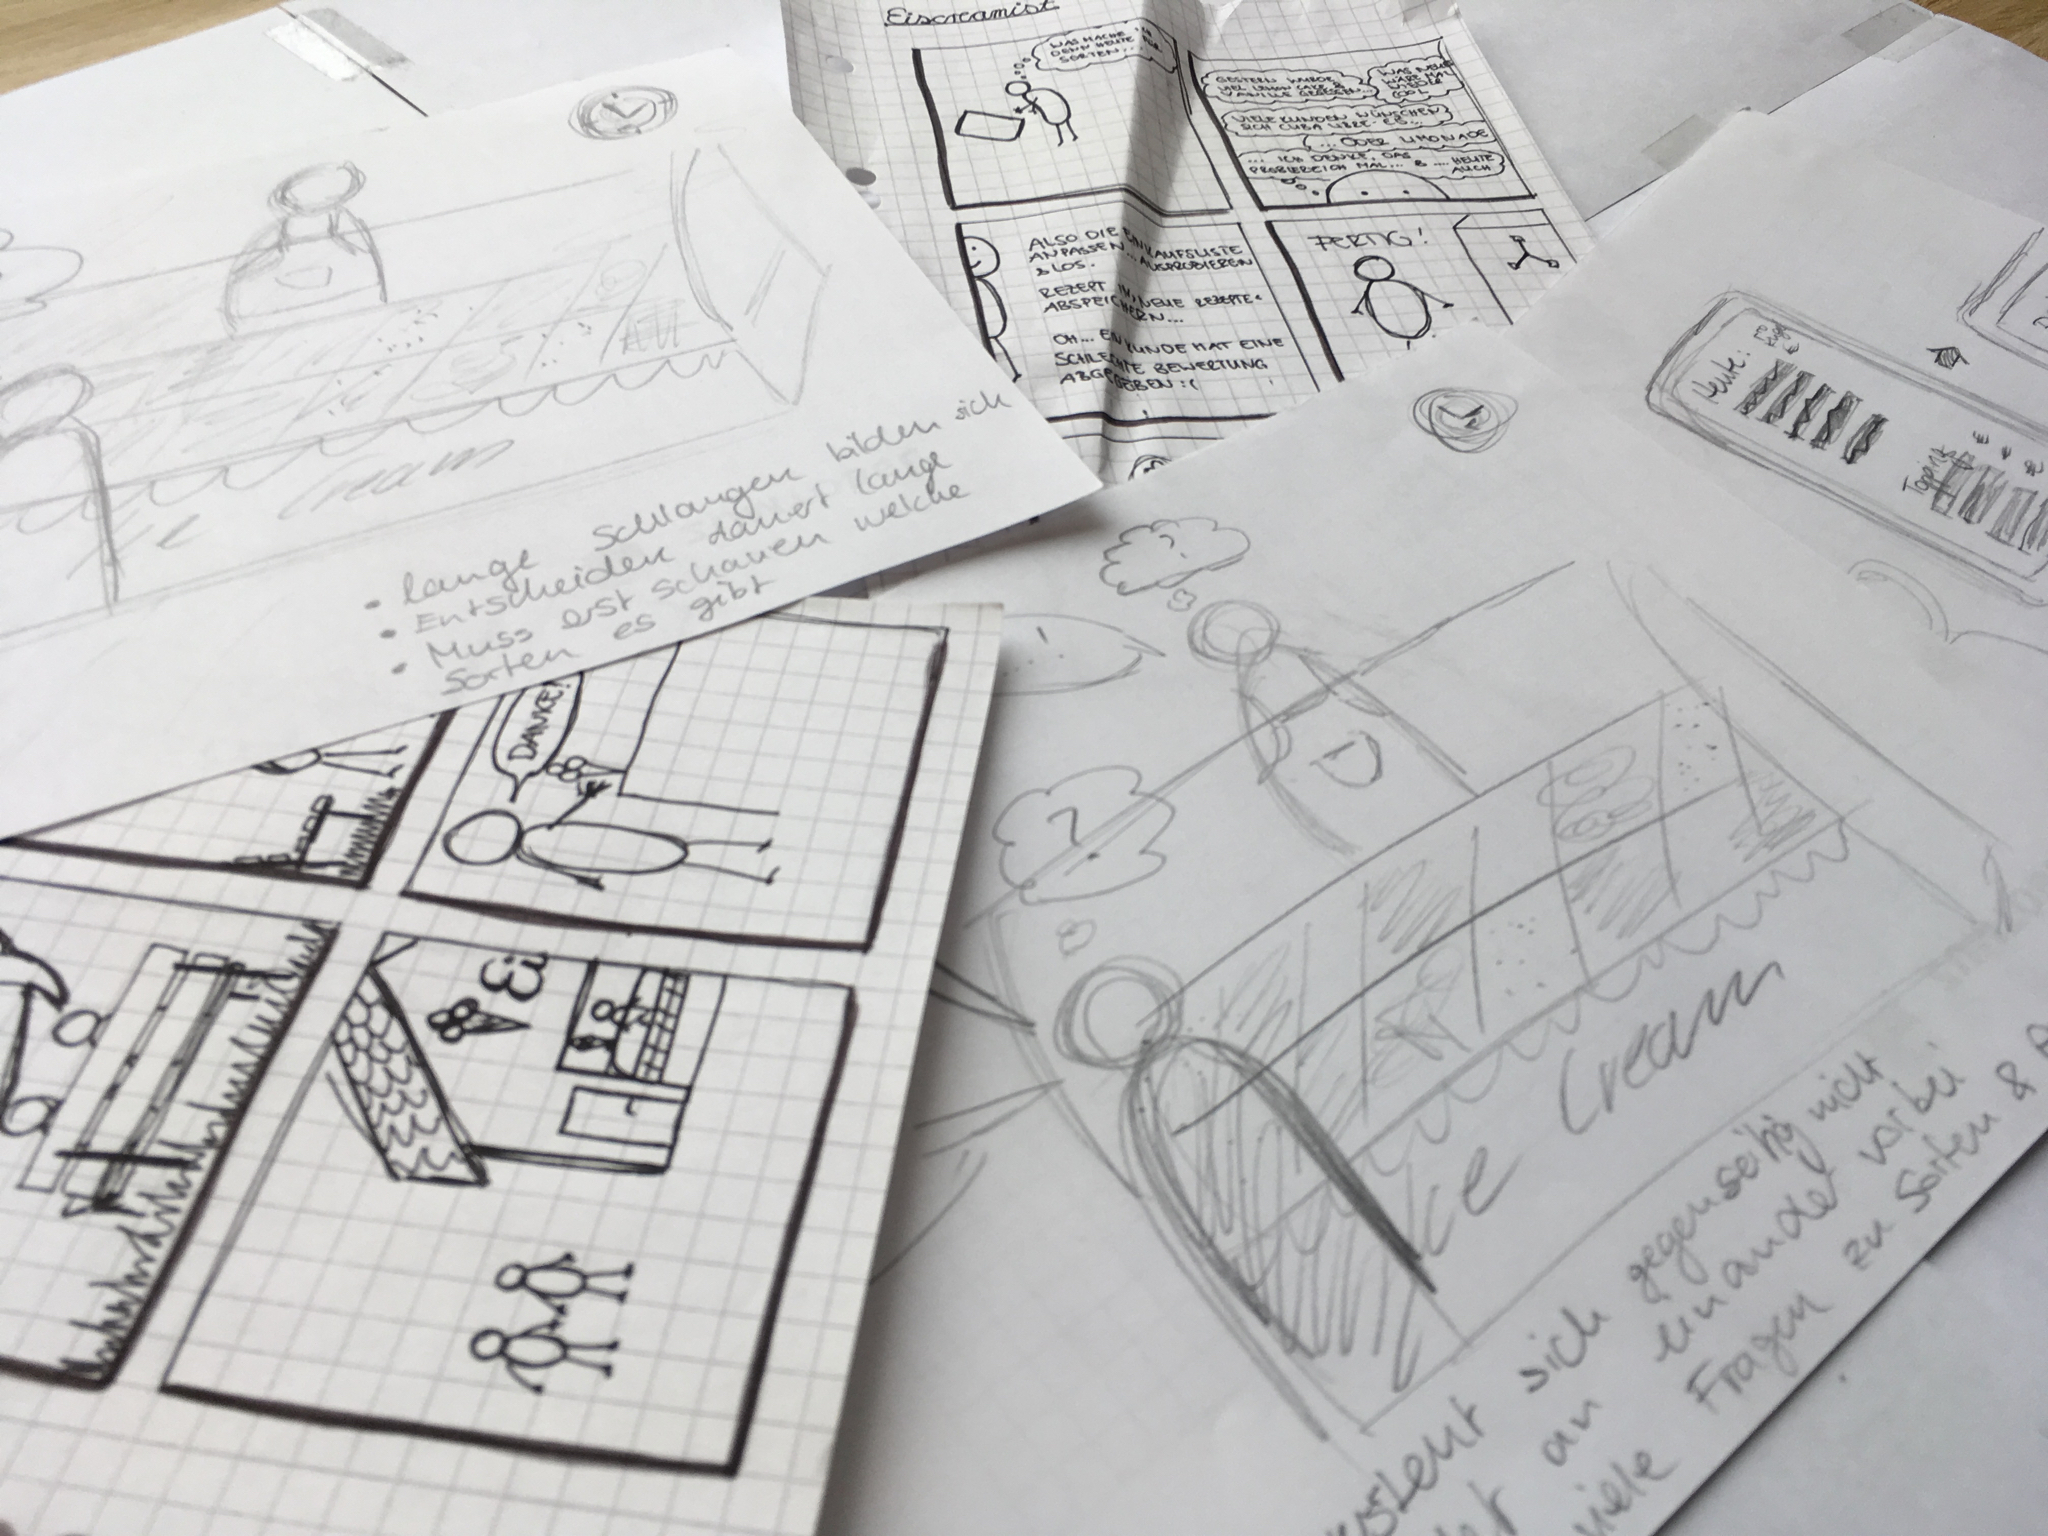 Eiscreamist
WAS MACHE ICH
DENN HEUTE FÜR
SORTEN...
GESTERN WURDE
VIEL LEMON CAKE &
VANILLE GEGESSEN...
WAS NEUES
WÄRE MAL
WIEDER
COOL
VIELE KUNDEN WÜNSCHEN
SICH CUBA LIBRE EIS...
... ODER LIMONADE
... ICH DENKE, DAS
PROBIERE ICH MAL... & .... HEUTE
AUCH
ALSO DIE EINKAUFSLISTE
ANPASSEN... AUSPROBIEREN
& LOS.
REZEPT IN NEUE REZEPTE
ABSPEICHERN...
OH... EIN KUNDE HAT EINE
SCHLECHTE BEWERTUNG
ABGEGEBEN :(
FERTIG!
Heute:
Topping
Cream
• lange Schlangen bilden sich
• Entscheiden dauert lange
• Muss erst schauen welche
Sorten es gibt
DANKE!
Eis
?
?
Ice Cream
sich gegenseitig nicht
an einander vorbei
viele Fragen zu Sorten &